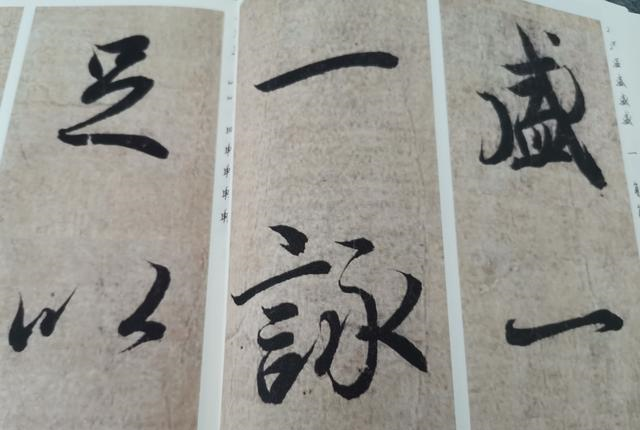 盛一
一詠
足以